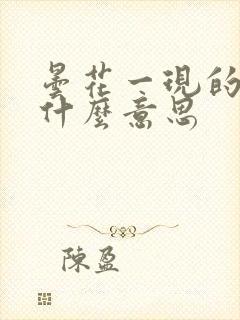 曇花一現的
什麼意思
陳盈